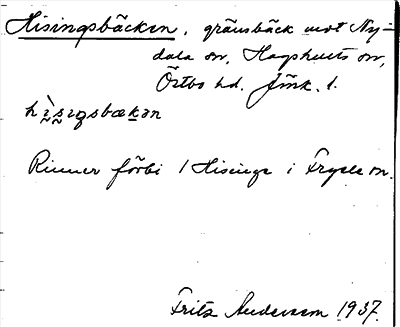 Hisingsbäcken, gränsbäck mot Ny-
dala sn, Hagshults sn,
Östbo hd. Jönk. l.
Rinner förbi 1 Hisinge i Fryele sn.
Fritz Andersson 1937.